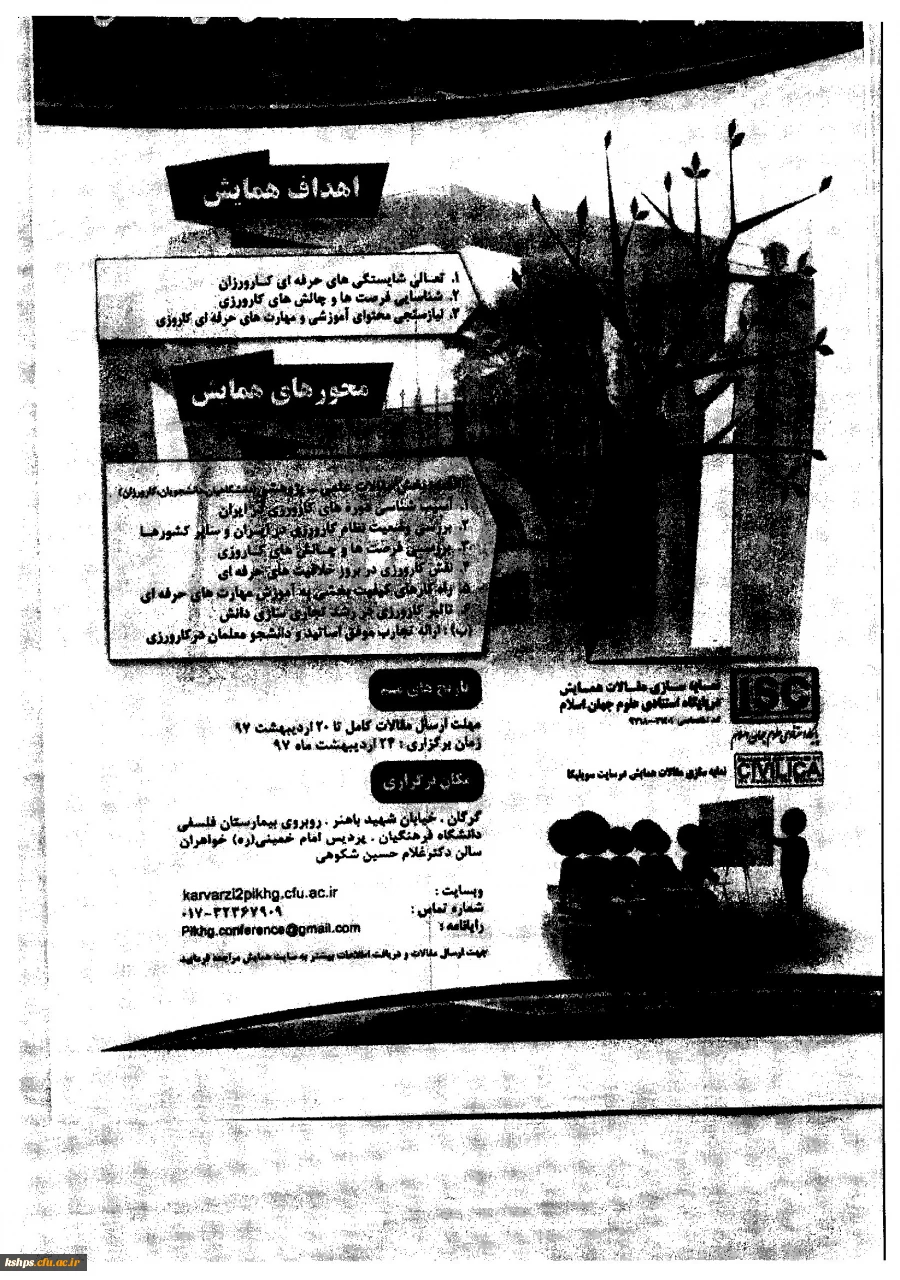 اهداف همایش
۱. تعالی شایستگی های حرفه ای کارورزان
۲. شناسایی فرصت ها و چالش های کارورزی
۳. نیازسنجی محتوای آموزشی و مهارت های حرفه ای کاروزی
محورهای همایش
آسیب شناسی دوره های کارورزی در ایران
۲. بررسی وضعیت نظام کارورزی در ایران و سایر کشورها
۳. بررسی فرصت ها و چالش های کاروزی
۴. نقش کارورزی در بروز خلاقیت های حرفه ای
۵. راه کارهای کیفیت بخشی به آموزش مهارت های حرفه ای
۶. تاثیر کارورزی در رشد تجاری سازی دانش
(ب) : ارائه تجارب موفق اساتید و دانشجو معلمان در کارورزی
تاریخ های مهم
مهلت ارسال مقالات کامل تا ۲۰ اردیبهشت ۹۷
زمان برگزاری : ۲۴ اردیبهشت ماه ۹۷
مکان برگزاری
گرگان . خیابان شهید باهنر . روبروی بیمارستان فلسفی
دانشگاه فرهنگیان . پردیس امام خمینی(ره) خواهران
سالن دکتر غلام حسین شکوهی
وبسایت : karvarzi2pikhg.cfu.ac.ir
شماره تماس : ۰۱۷-۳۲۳۶۷۹۰۹
رایانامه : Pikhg.conference@gmail.com
جهت ارسال مقالات و دریافت اطلاعات بیشتر به سایت همایش مراجعه فرمایید
ISC
نمایه سازی مقالات همایش
در پایگاه استنادی علوم جهان اسلام
CIVILICA
نمایه سازی مقالات همایش در سایت سیویلیکا
kshps.cfu.ac.ir